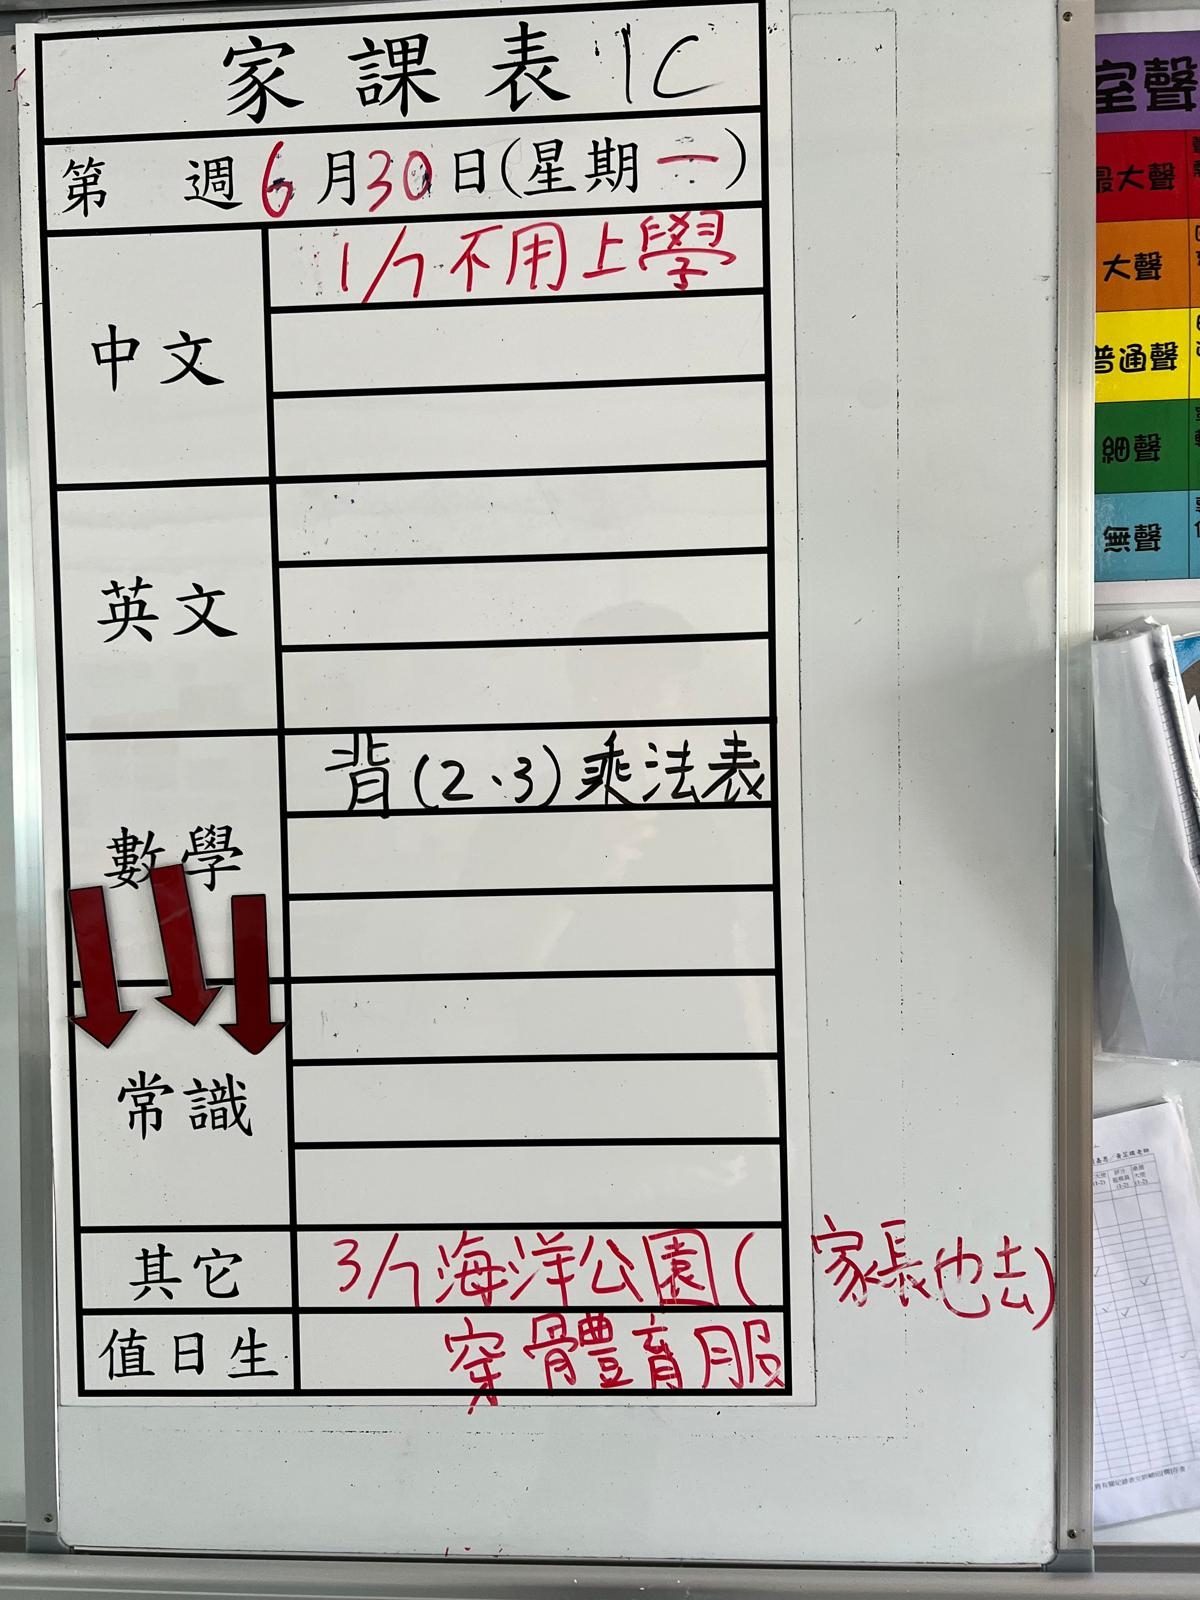 家課表 1C
第 週 6月30日(星期一)
中文
1/7 不用上學
英文
數學
背(2、3)乘法表
常識
其它
3/7 海洋公園( 家長也去)
值日生
穿體育服
室聲
最大聲
大聲
普通聲
細聲
無聲